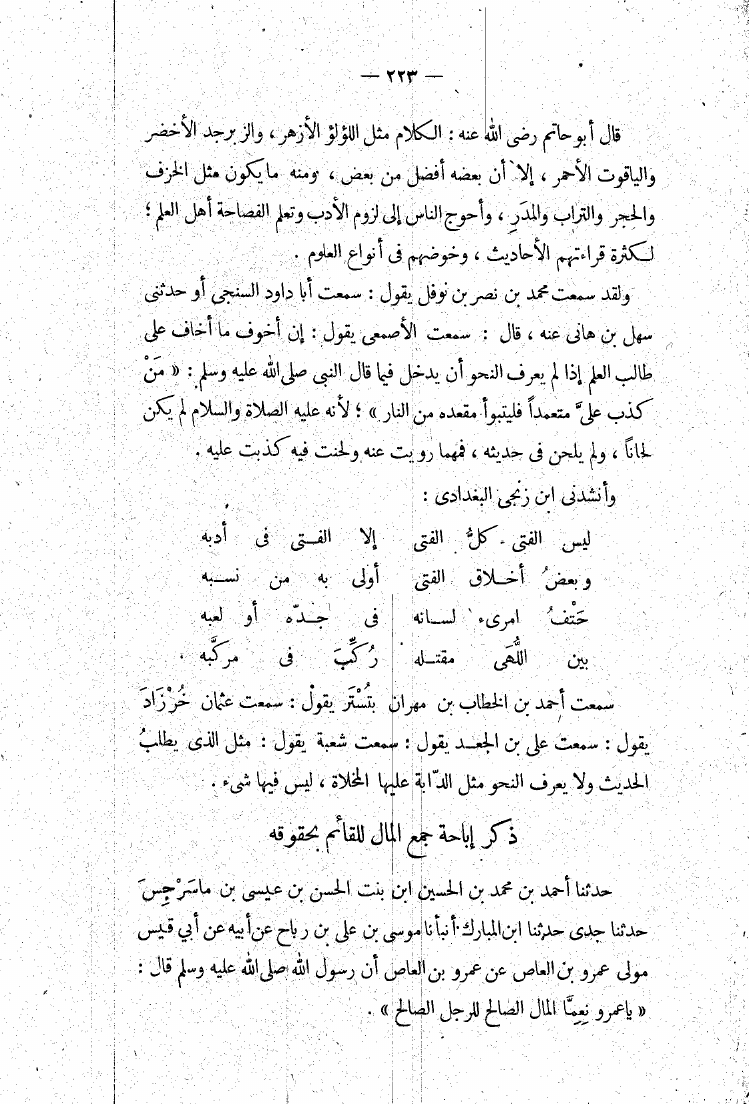 — ٢٢٣ —
قال أبو حاتم رضى الله عنه : الكلام مثل اللؤلؤ الأزهر ، والزبرجد الأخضر
والياقوت الأحمر ، إلا أن بعضه أفضل من بعض ، ومنه ما يكون مثل الخزف
والحجر والتراب والمدَرِ ، وأحوج الناس إلى لزوم الأدب وتعلم الفصاحة أهل العلم ؛
لكثرة قراءتهم الأحاديث ، وخوضهم فى أنواع العلوم .
ولقد سمعت محمد بن نصر بن نوفل يقول : سمعت أبا داود السنجى أو حدثنى
سهل بن هانى عنه ، قال : سمعت الأصمعى يقول : إن أخوف ما أخاف على
طالب العلم إذا لم يعرف النحو أن يدخل فيما قال النبى صلى الله عليه وسلم : « مَنْ
كذب علىَّ متعمداً فليتبوأ مقعده من النار » ؛ لأنه عليه الصلاة والسلام لم يكن
لحاناً ، ولم يلحن فى حديثه ، فمهما رويت عنه ولحنت فيه كذبت عليه .
وأنشدنى ابن زنجى البغدادى :
ليس الفتى كلُّ الفتى إلا الفـتى فى أدبه
وبعضُ أخلاق الفتى أولى به من نسبه
حَتْفُ امرىء لسانه فى جدّه أو لعبه
بين اللُّهَى مقتله رُكِّبَ فى مركَّبه .
سمعت أحمد بن الخطاب بن مهران بتُسْتَر يقول : سمعت عثمان خُرْزَادَ
يقول : سمعت على بن الجعد يقول : سمعت شعبة يقول : مثل الذى يطلبُ
الحديث ولا يعرف النحو مثل الدّابة عليها المخلاة ، ليس فيها شىء .
ذكر إباحة جمع المال للقائم بحقوقه
حدثنا أحمد بن محمد بن الحسين ابن بنت الحسن بن عيسى بن ماسَرْجِسَ
حدثنا جدى حدثنا ابن المبارك أنبأنا موسى بن على بن رباح عن أبيه عن أبي قيس
مولى عمرو بن العاص عن عمرو بن العاص أن رسول الله صلى الله عليه وسلم قال :
« ياعمرو نِعِمَّا المال الصالح للرجل الصالح » .